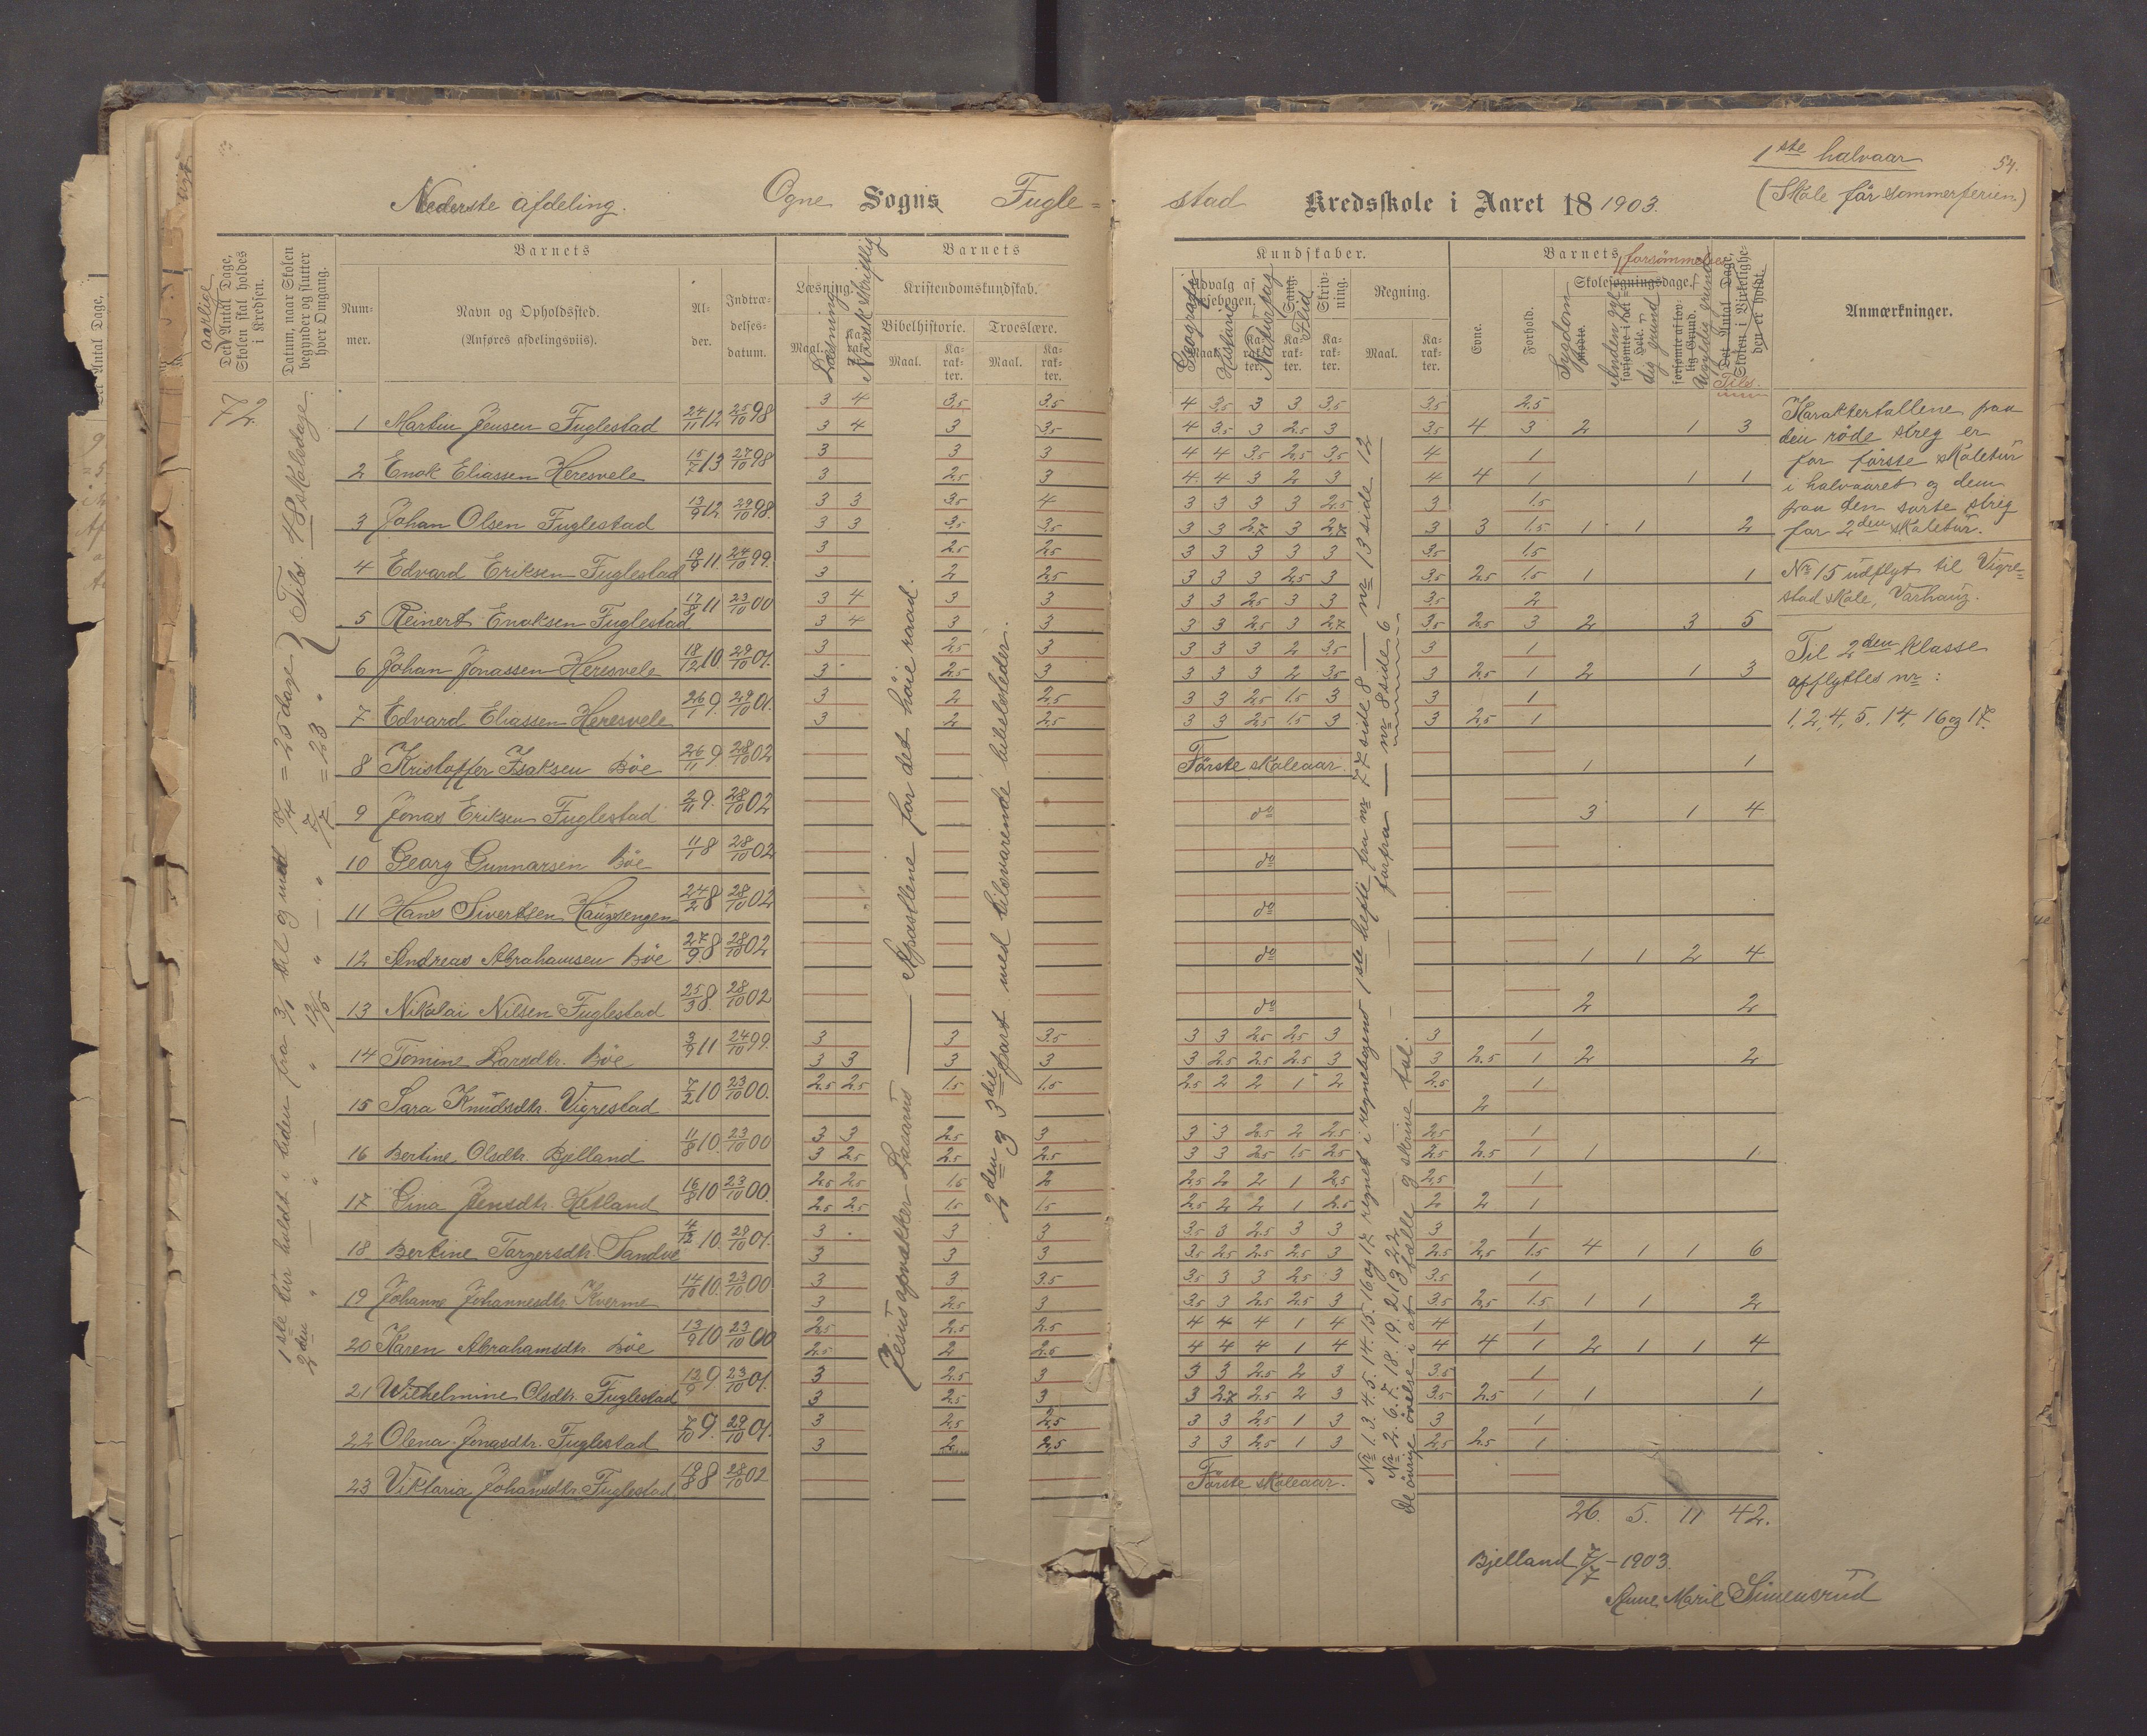 1ste halvaar
54.
Nederste afdeling. Ogne Sogns Fugle=
stad Kredsskole i Aaret 18 1903. (Skole før sommerferien)
aarlige
Det Antal Dage, Skolen skal holdes i Kredsen.
Datum, naar Skolen begynder og slutter hver Omgang.
Barnets
Nummer.
Navn og Opholdssted.
(Anføres afdelingsviis).
Alder.
Indtrædelsesdatum.
Barnets
Læsning.
Maal.
Læsning
Karakter.
Norsk skriftlig
Kristendomskundskab.
Bibelhistorie.
Troeslære.
Maal. Karakter. Maal. Karakter.
Kundskaber.
Udvalg af Læsebogen.
Geografi
Historie
Naturfag
Sang.
Flid
Skrivning.
Regning.
Maal. Karakter.
Barnets
forsømmelser
Evne.
Forhold.
Skolesøgningsdage.
Sygdom
mødte.
Anden gyldig grund
forsømte i det Hele.
forsømte af lovlig Grund.
Ugyldig grund
Det Antal Dage, Skolen i Virkeligheden er holdt.
Tils.
Anmærkninger.
72.
1ste tur holdt i tiden fra 3/1 til og med 8/4 = 25 dage
2den " — " — " 12/5 " — " 7/7 = 23 "
Tils. 48 skoledage.
1 Martin Jensen Fuglestad 24/11 12 25/10 98
3 4 3.5 3.5 4 3.5 3 3 3.5 3.5 2.5
3 4 3 3.5 4 3.5 3 2.5 3 3.5 4 3 2 1 3
2 Enok Eliassen Heresvele 15/7 13 27/10 98
3 3 3 4 4 3.5 2.5 3.5 4 1
3 2.5 3 4 4 3 2 3 4 4 1 1 1
3 Johan Olsen Fuglestad 13/9 12 29/10 98.
3 3 3.5 4 3 3 3 3 2.5 3 1.5
3 3 3.5 3.5 3 3 2.7 3 2.7 3 3 1.5 1 1 2
4 Edvard Eriksen Fuglestad 19/9 11 24/10 99.
3 2.5 2.5 3 3 3 3 3 3.5 1.5
3 2 2.5 3 3 3 2.5 3 3.5 2.5 1.5 1 1
5 Reinert Enoksen Fuglestad 17/8 11 23/10 00
3 4 3 3 3 3 2.5 3 3 3.5 2
3 4 3 3 3 3 2.5 3 2.7 3.5 2.5 3 2 3 5
6 Johan Jonassen Heresvele 18/12 10 29/10 01.
3 2.5 3 3 3 3 2 3.5 3 1
3 2.5 3 3 3 3 2 3.5 3 2.5 1 2 1 3
7 Edvard Eliassen Heresvele 26/1 9. 29/10 01.
3 2 2.5 3 3 2.5 1.5 3 3 1
3 2 2.5 3 3 2.5 1.5 3 3 2.5 1
8 Kristoffer Isaksen Bøe 26/11 9 28/10 02 Første skoleaar. 1 1
9 Jonas Eriksen Fuglestad 2/11 9. 28/10 02 do 3 1 4
10 Georg Gunnarsen Bøe 11/1 8 28/10 02 do
11 Hans Sivertsen Haugsengen 24/2 8 28/10 02 do
12 Andreas Abrahamsen Bøe 27/9 8 28/10 02 do 1 1 2 4
13 Nikolai Nilsen Fuglestad 25/3 8. 28/10 02 do 2 2
14 Tomine Larsdtr. Bøe 3/9 11 24/10 99.
3 3 3.5 3 3 2.5 2.5 3 3 1
3 3 3 3 3 2.5 2.5 2.5 3 3 2.5 1 2 2
15 Sara Knudsdtr. Vigrestad 7/2 10 23/10 00.
2.5 2.5 1.5 1.5 2.5 2 2 1 2 2.5 1
2
16 Bertine Olsdtr. Bjelland 11/8 10. 23/10 00
3 3 2.5 3 3 3 2.5 2 2.5 2.5 1
3 2.5 2.5 2.5 3 3 2.5 1.5 2.5 2.5 2.5 1 1 1
17 Gina Jensdtr. Hetland 16/8 10 23/10 00.
2.5 2.5 1.5 2 2.5 2 2 1 2.5 2.5 1
2.5 2.5 1.5 1.5 2.5 2 2 1 2.5 2 2 1
18 Bertine Torgersdtr. Sandve 4/12 10. 29/10 01.
3 3 3 3.5 3 2.5 3 3 3 1
3 3 3 3.5 2.5 2.5 2.5 3 2.5 2.5 1.5 4 1 1 6
19 Johanne Johannesdtr. Kverme 14/10 10. 23/10 00.
3 3 3.5 3.5 3 3 2.5 3 3.5 1
3 2.5 3 3.5 3 2.5 2.5 3 3.5 2.5 1.5 1 1 2
20 Karen Abrahamsdtr. Bøe 13/9 10 23/10 00
2.5 2.5 2.5 4 4 4 1 4 4 1
2.5 2 2.5 4 4 4 1 4 4 4 1 2 1 1 4
21 Wilhelmine Olsdtr. Fuglestad 12/9 9 23/10 01.
3 2.5 3 3 3 2.5 2 3 3.5 1
3 2.5 3 3 2.7 2.5 2 3 3.5 2.5 1 1 1
22 Olena Jonasdtr. Fuglestad 7/10 9. 29/10 01.
3 2.5 2.5 3 3 2.5 1 3 3 1
3 2 2.5 3 3 2.5 1 3 2.5 2.5 1
23 Viktoria Johansdtr. Fuglestad 19/8 8 28/10 02 Første skoleaar.
26. 5. 11 42.
Jesus opvækker Lasarus — Apostlene for det høie raad.
2den og 3die part med tilsvarende bibelsteder.
Nr 1. 3. 4. 5. 14. 15. 16. og 17. regnet i regnebogens 1ste hefte fra nr 77 side 8 — nr 13 side 12
Nr 2. 6. 7. 18. 19. 21 og 22 — forfra — nr 8 side 6
De øvrige øvelse i at tælle og skrive tal.
Karaktertallene paa
den røde streg er
for første skoletur
i halvaaret og dem
paa den sorte streg
for 2den skoletur.
Nr 15 udflyt til Vigre=
stad skole, Varhaug.
Til 2den klasse
opflyttes nr:
1, 2, 4, 5, 14, 16 og 17.
Bjelland 7/7 – 1903.
Anne Marie Simensrud